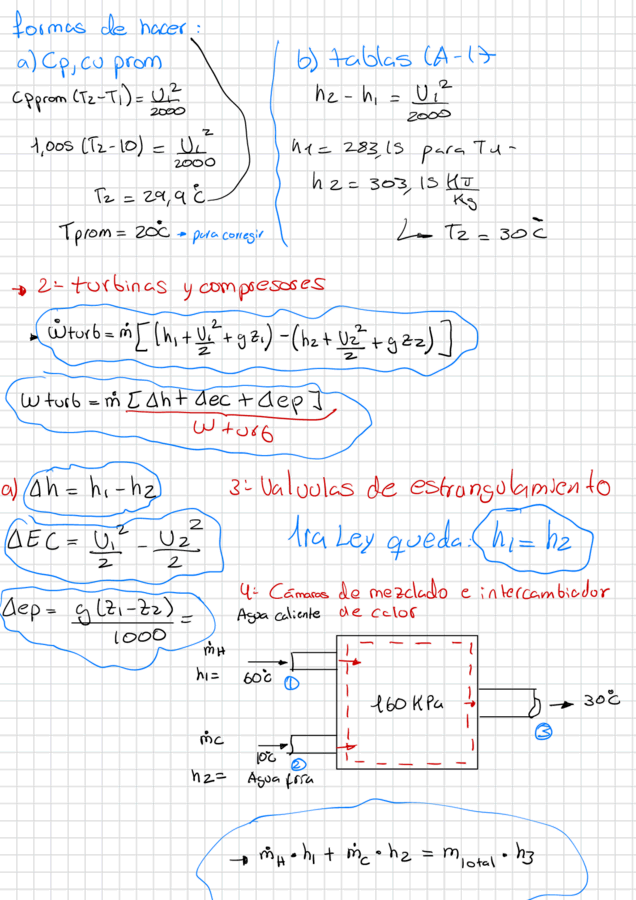 formas de hacer:
a) Cp, cv prom
Cpprom (T2-T1) = U1²/2000
1,005 (T2-10) = U1²/2000
T2 = 29,9°C
Tprom = 20°C → para corregir
b) tablas (A-17)
h2 - h1 = U1²/2000
h1 = 283,15 para T1
h2 = 303,15 KJ/Kg
↳ T2 = 30°C
→ 2- turbinas y compresores
• ẇturb = ṁ[(h1 + U1²/2 + gz1) - (h2 + U2²/2 + gz2)]
wturb = ṁ [Δh + Δec + Δep]
wturb
a) Δh = h1 - h2
ΔEC = U1²/2 - U2²/2
Δep = g(z1-z2)/1000 =
3- Valvulas de estrangulamiento
1ra Ley queda: h1 = h2
4- Cámaras de mezclado e intercambiador
de calor
Agua caliente
ṁH
h1=
60°C
1
160 KPa
30°C
3
ṁC
10°C
2
h2=
Agua fría
→ ṁH · h1 + ṁC · h2 = mtotal · h3